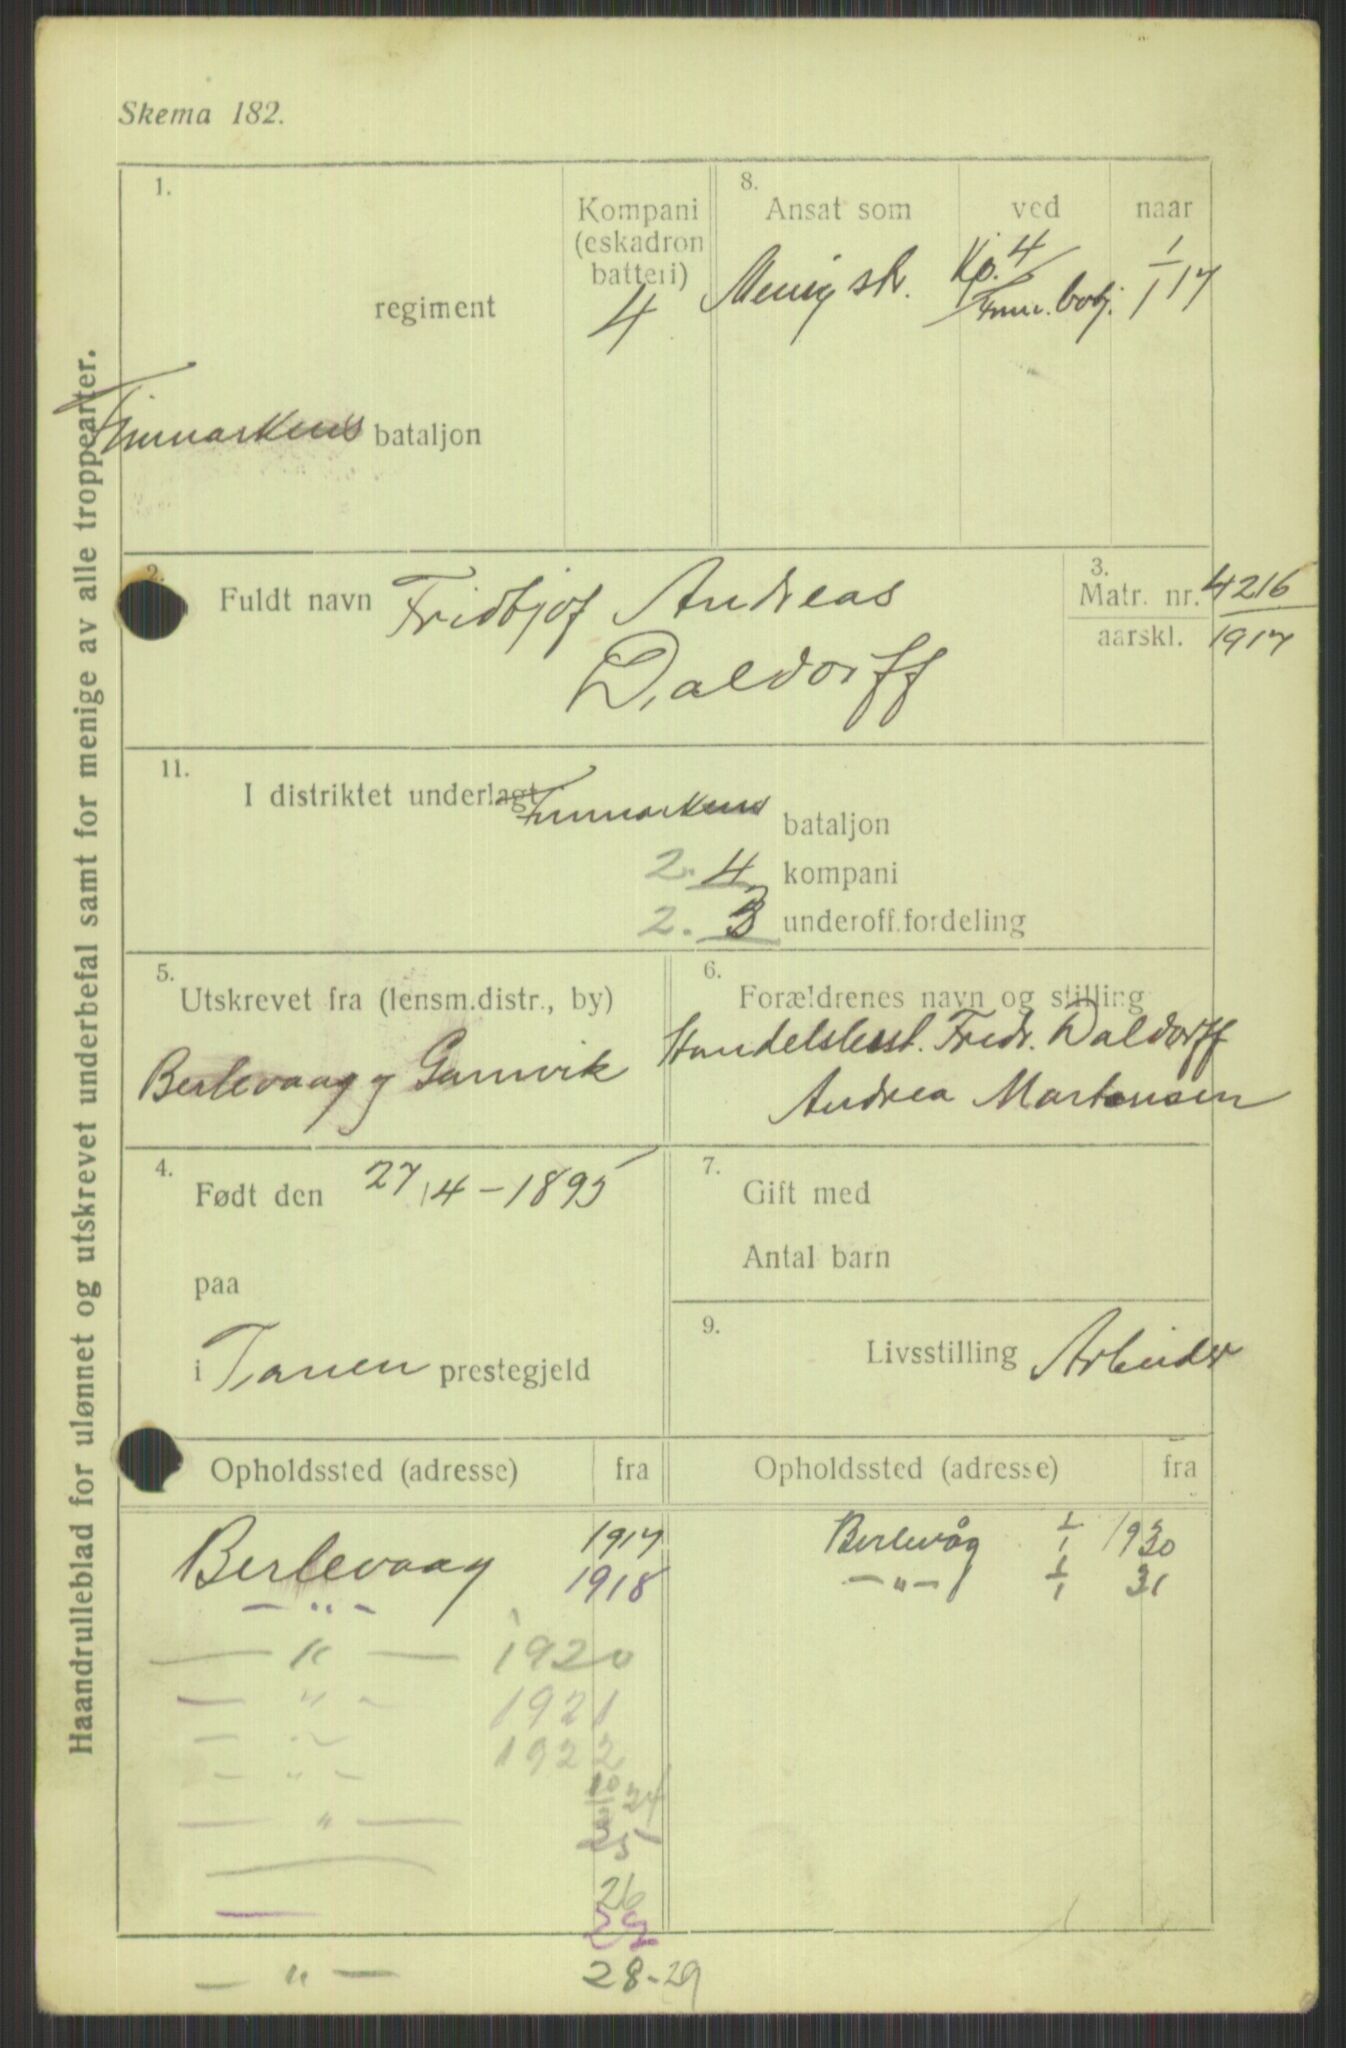 Skema 182.
Haandrulleblad for ulønnet og utskrevet underbefal samt for menige av alle troppearter.
1.
regiment
Finmarkens bataljon
Kompani
(eskadron
batteri)
4
8.
Ansat som
ved
naar
Menig str.
Kp. 4
Finm. batj.
1/1 17
2.
Fuldt navn Fridtjof Andreas
Daldorff
3.
Matr. nr. 4216
aarskl. 1917
11.
I distriktet underlagt Finmarkens
bataljon
2. 4 kompani
2. 3 underoff.fordeling
5.
Utskrevet fra (lensm.distr., by)
Berlevaag og Gamvik
6.
Forældrenes navn og stilling
Handelsbest. Fredr. Daldorff
Andrea Martensen
4.
Født den 27/4-1895
paa
i Tanen prestegjeld
7.
Gift med
Antal barn
9.
Livsstilling Arbeider
Opholdssted (adresse) fra
Berlevaag 1917
— " — 1918
— " — 1920
— " — 1921
1922
— " —
— " — 25
26
— " — 28-29
Opholdssted (adresse) fra
Berlevåg 1/1 1930
— " — 1/1 31